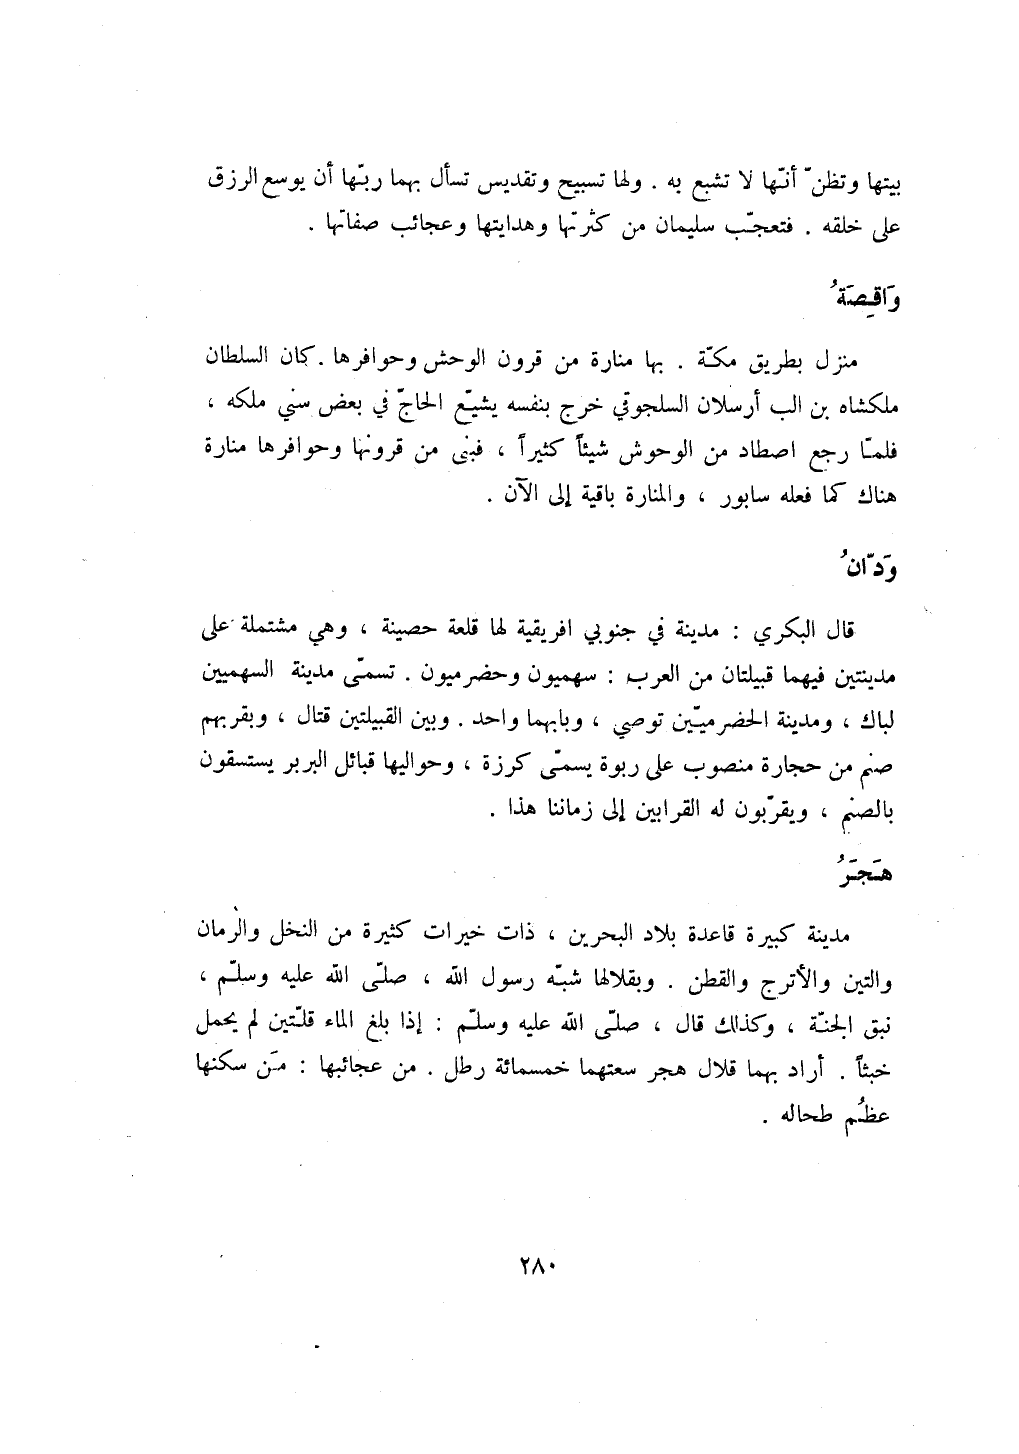 بيتها وتظنّ أنّها لا تشبع به . ولها تسبيح وتقديس تسأل بهما ربّها أن يوسع الرزق
على خلقه . فتعجّب سليمان من كثرتها وهدايتها وعجائب صفاتها .
وَاقِصَةُ
منزل بطريق مكّة . بها منارة من قرون الوحش وحوافرها . كان السلطان
ملكشاه بن الب أرسلان السلجوقي خرج بنفسه يشيّع الحاجّ في بعض سني ملكه ،
فلمّا رجع اصطاد من الوحوش شيئاً كثيراً ، فبنى من قرونها وحوافرها منارة
هناك كما فعله سابور ، والمنارة باقية إلى الآن .
وَدّانُ
قال البكري : مدينة في جنوبي افريقية لها قلعة حصينة ، وهي مشتملة على
مدينتين فيهما قبيلتان من العرب : سهميون وحضرميون . تسمّى مدينة السهميين
لباك ، ومدينة الحضرميّين توصي ، وبابهما واحد . وبين القبيلتين قتال ، وبقربهم
صنم من حجارة منصوب على ربوة يسمّى كرزة ، وحواليها قبائل البربر يستسقون
بالصنم ، ويقرّبون له القرابين إلى زماننا هذا .
هَجَرُ
مدينة كبيرة قاعدة بلاد البحرين ، ذات خيرات كثيرة من النخل والرمان
والتين والأترج والقطن . وبقلالها شبّه رسول الله ، صلّى الله عليه وسلّم ،
نبق الجنّة ، وكذلك قال ، صلّى الله عليه وسلّم : إذا بلغ الماء قلّتين لم يحمل
خبثاً . أراد بهما قلال هجر سعتهما خمسمائة رطل . من عجائبها : مَن سكنها
عظُم طحاله .
٢٨٠